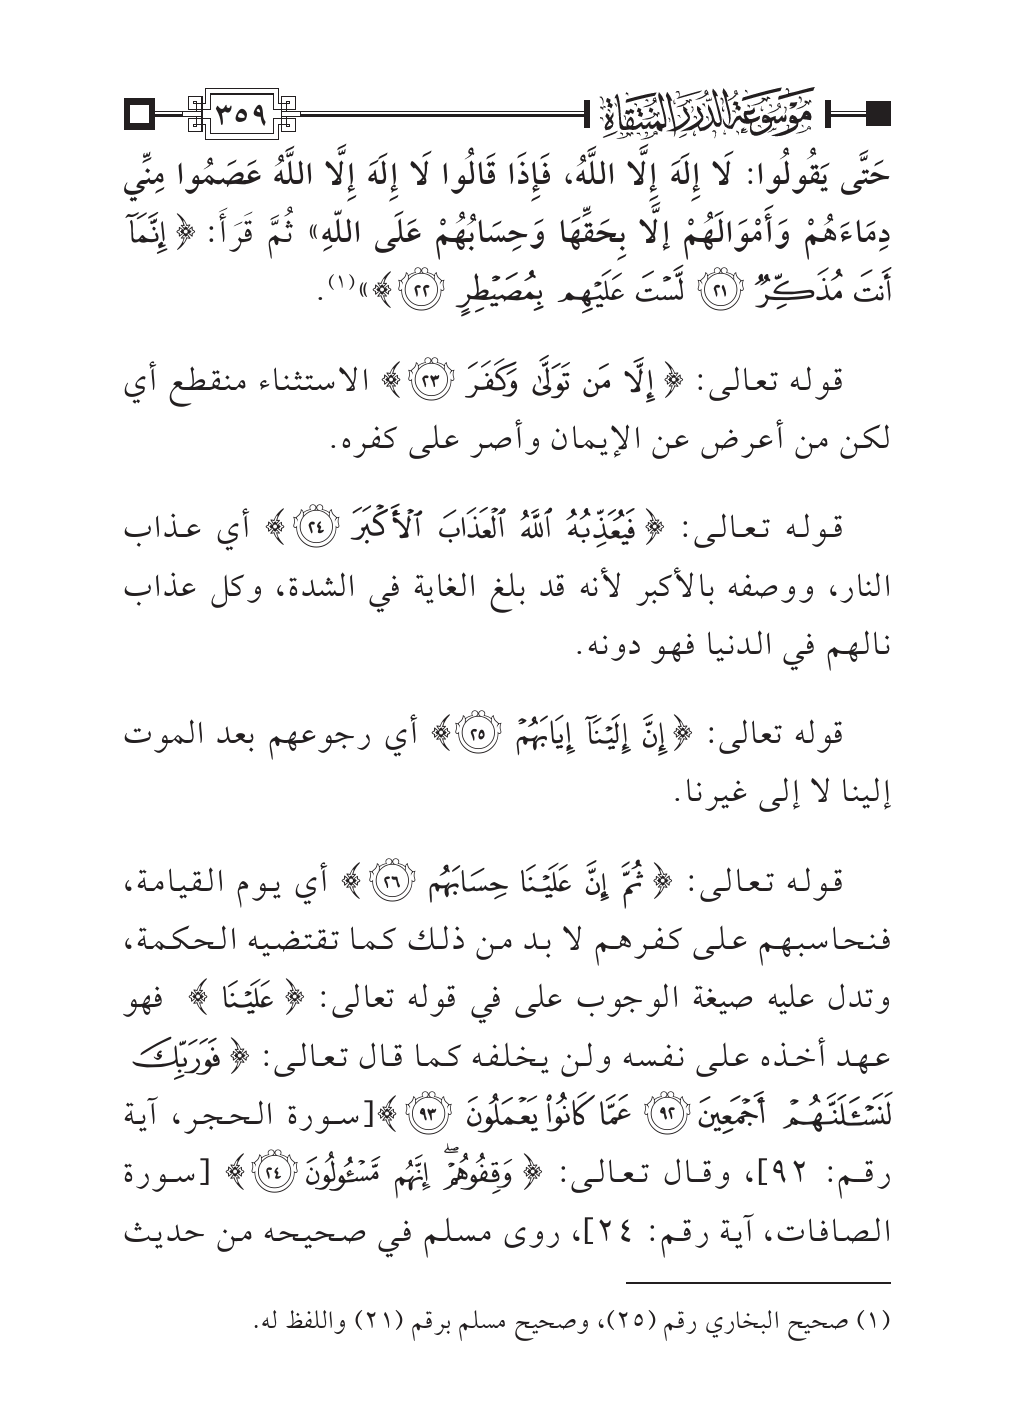 موسوعة الدرر المنتقاة ٣٥٩
حَتَّى يَقُولُوا: لَا إِلَهَ إِلَّا اللَّهُ، فَإِذَا قَالُوا لَا إِلَهَ إِلَّا اللَّهُ عَصَمُوا مِنِّي
دِمَاءَهُمْ وَأَمْوَالَهُمْ إلَّا بِحَقِّهَا وَحِسَابُهُمْ عَلَى اللّهِ» ثُمَّ قَرَأَ: ﴿ إِنَّمَآ
أَنتَ مُذَكِّرٌ ٢١ لَّسْتَ عَلَيْهِم بِمُصَيْطِرٍ ٢٢ ﴾»(١).
قوله تعالى: ﴿ إِلَّا مَن تَوَلَّىٰ وَكَفَرَ ٢٣ ﴾ الاستثناء منقطع أي
لكن من أعرض عن الإيمان وأصر على كفره.
قوله تعالى: ﴿ فَيُعَذِّبُهُ اللَّهُ الْعَذَابَ الْأَكْبَرَ ٢٤ ﴾ أي عذاب
النار، ووصفه بالأكبر لأنه قد بلغ الغاية في الشدة، وكل عذاب
نالهم في الدنيا فهو دونه.
قوله تعالى: ﴿ إِنَّ إِلَيْنَآ إِيَابَهُمْ ٢٥ ﴾ أي رجوعهم بعد الموت
إلينا لا إلى غيرنا.
قوله تعالى: ﴿ ثُمَّ إِنَّ عَلَيْنَا حِسَابَهُم ٢٦ ﴾ أي يوم القيامة،
فنحاسبهم على كفرهم لا بد من ذلك كما تقتضيه الحكمة،
وتدل عليه صيغة الوجوب على في قوله تعالى: ﴿ عَلَيْنَا ﴾ فهو
عهد أخذه على نفسه ولن يخلفه كما قال تعالى: ﴿ فَوَرَبِّكَ
لَنَسْـَٔلَنَّهُمْ أَجْمَعِينَ ٩٢ عَمَّا كَانُوا۟ يَعْمَلُونَ ٩٣ ﴾[سورة الحجر، آية
رقم: ٩٢]، وقال تعالى: ﴿ وَقِفُوهُمْ ۖ إِنَّهُم مَّسْـُٔولُونَ ٢٤ ﴾ [سورة
الصافات، آية رقم: ٢٤]، روى مسلم في صحيحه من حديث
(١) صحيح البخاري رقم (٢٥)، وصحيح مسلم برقم (٢١) واللفظ له.